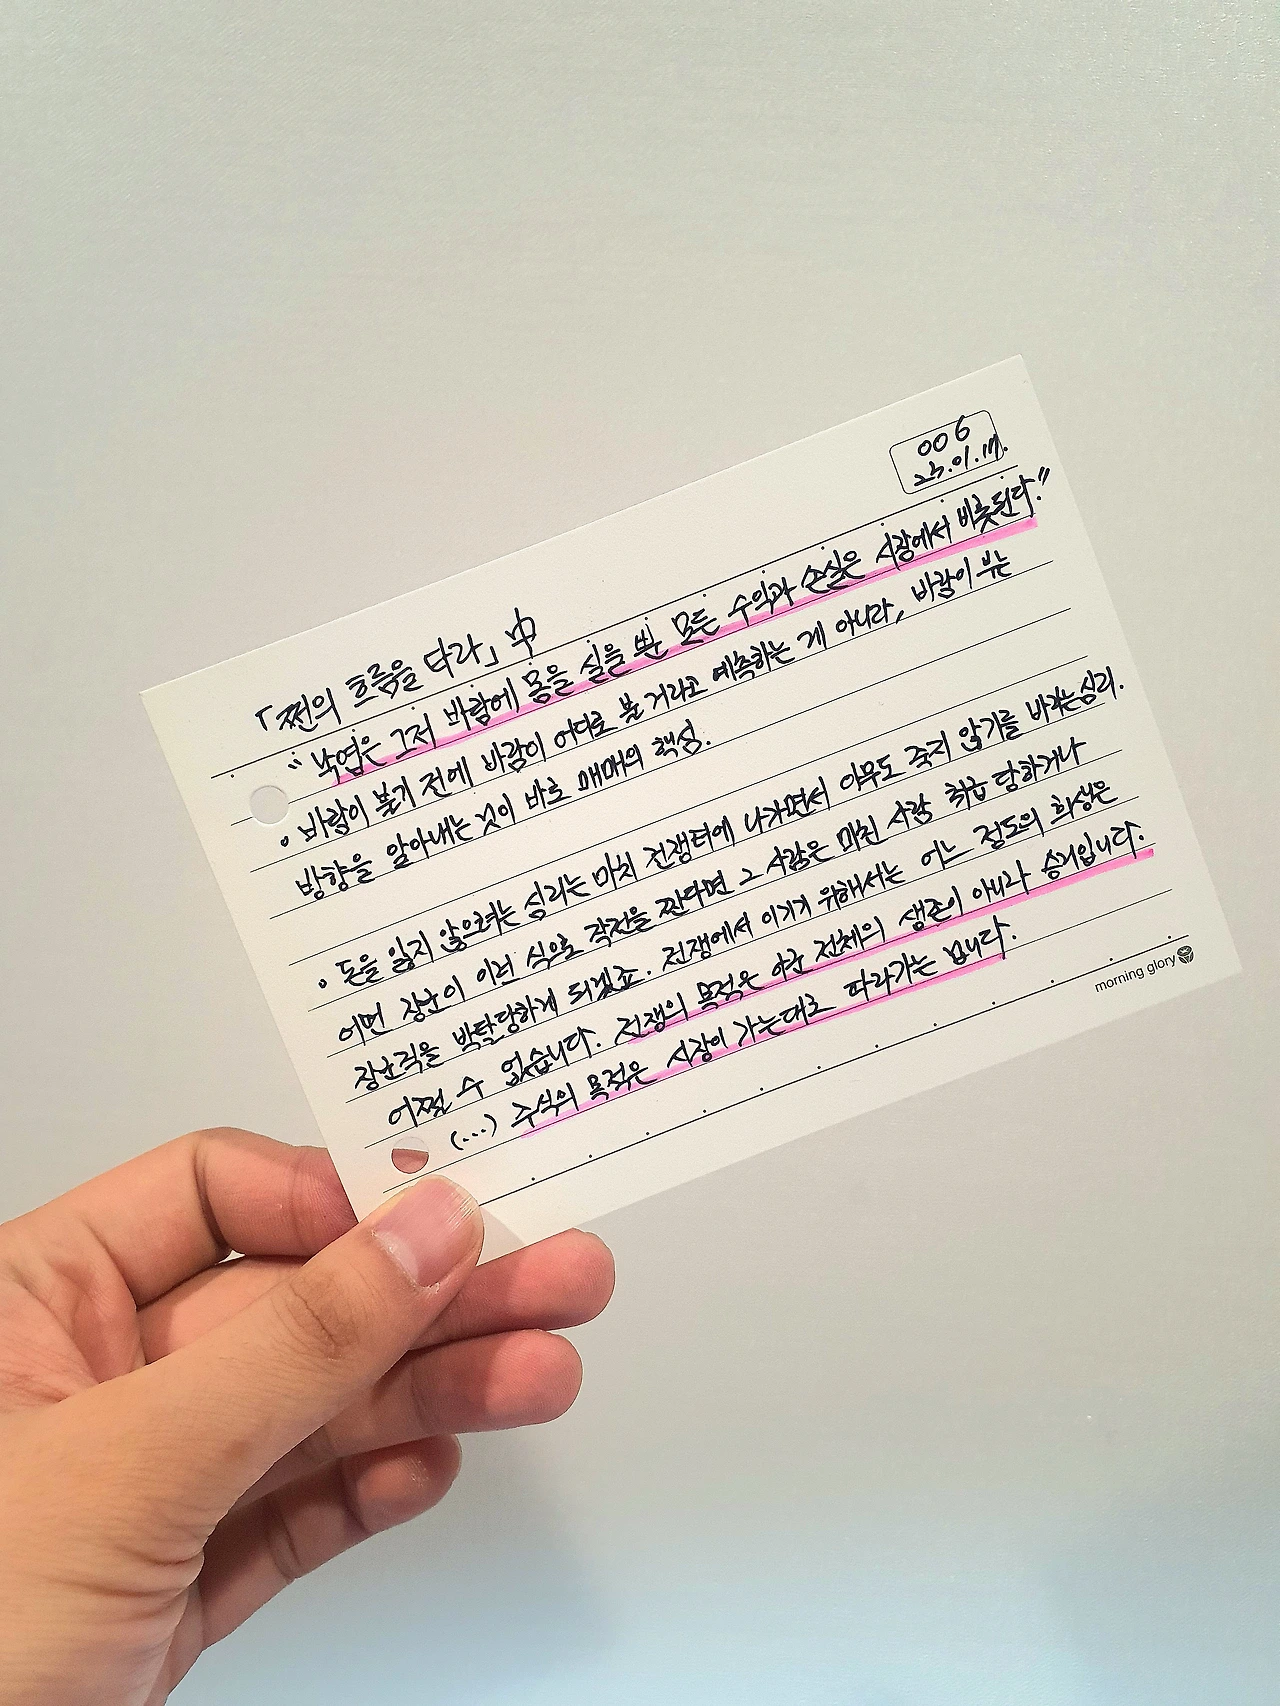 006
25.01.17.
「쩐의 흐름을 타라」 中
“낙엽은 그저 바람에 몸을 실을 뿐 모든 수익과 손실은 시장에서 비롯된다.”
• 바람이 불기 전에 바람이 어디로 불 거라고 예측하는 게 아니라, 바람이 부는
방향을 알아내는 것이 바로 매매의 핵심.
• 돈을 잃지 않으려는 심리는 마치 전쟁터에 나가면서 아무도 죽지 않기를 바라는 심리.
어떤 장군이 이런 식으로 작전을 짠다면 그 사람은 미친 사람 취급 당하거나
장군직을 박탈당하게 되겠죠. 전쟁에서 이기기 위해서는 어느 정도의 희생은
어쩔 수 없습니다. 전쟁의 목적은 아군 전체의 생존이 아니라 승리입니다.
(...) 주식의 목적은 시장이 가는대로 따라가는 겁니다.
morning glory